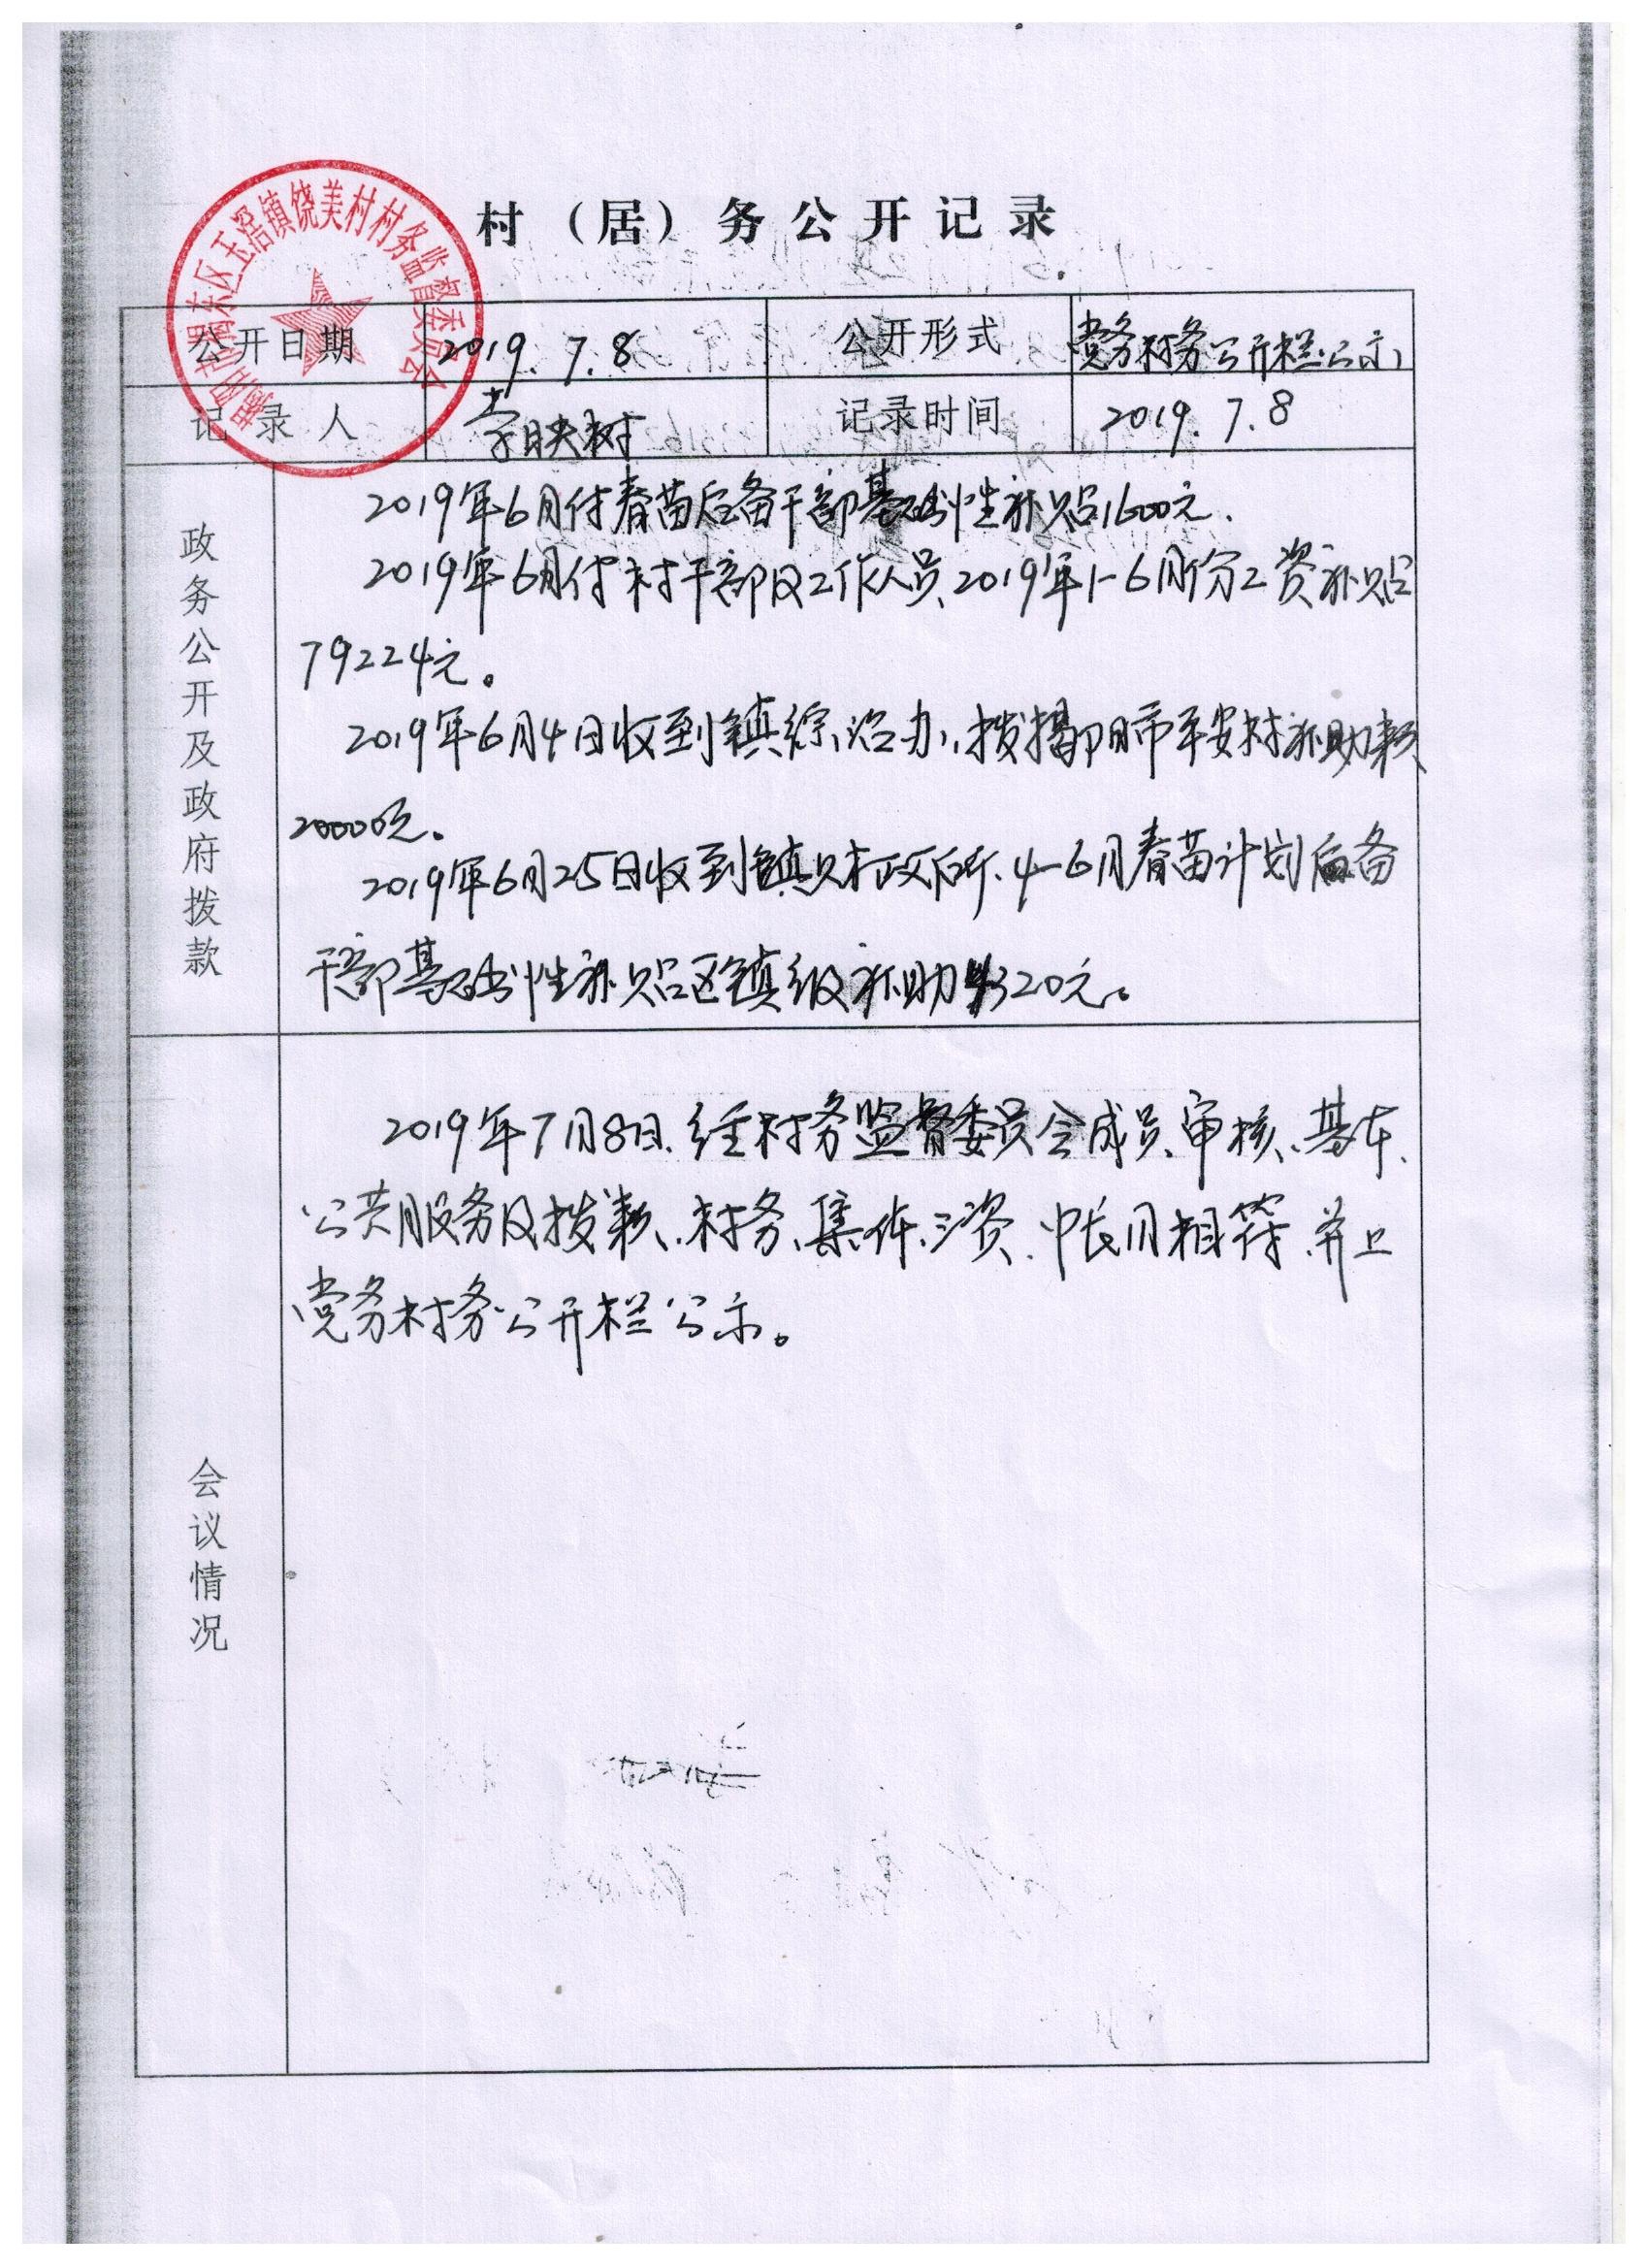 村（居）务公开记录
揭阳市揭东区玉滘镇饶美村村务监督委员会
公开日期 2019.7.8 公开形式 党务村务公开栏公示
记录人 映树 记录时间 2019.7.8
政务公开及政府拨款
2019年6月付春苗后备干部基础性补贴1600元.
2019年6月付村干部及工作人员2019年1-6月份工资补贴
79224元。
2019年6月4日收到镇综治办,拨揭阳市平安村补助款
20000元。
2019年6月25日收到镇财政所.4-6月春苗计划后备
干部基础性补贴区镇级补助320元。
会议情况
2019年7月8日.经村务监督委员会成员审核、基本
公共服务及拨款、村务、集体三资.帐目相符.并上
党务村务公开栏公示。